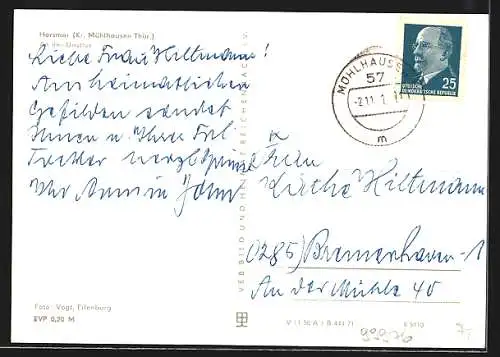 Horsmar (Kr. Mühlhausen Thür.)
An der Unstrut
Liebe Frau Hiltmann!
Aus heimatlichen
Gefilden sendet
Ihnen u. Ihrer Frl.
Tochter herzl. Grüsse
Ihr Armin
Foto: Vogt, Eilenburg
EVP 0,20 M
VEB BILD UND HEIMAT REICHENBACH I. V.
MÜHLHAUSEN
57
-2.11.
m
DEUTSCHE
DEMOKRATISCHE REPUBLIK
25
Frau
Hiltmann
0285) Bremerhaven-1
An der Mühle 40
V 11 50 A 1/B 441/71